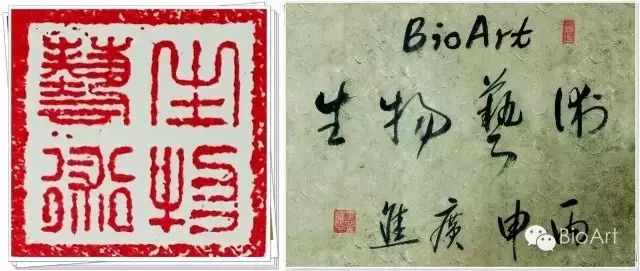 生物
藝術
BioArt
生物藝術
丙申廣進
BioArt